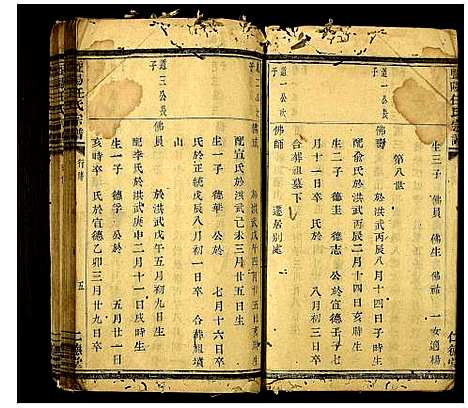 生三子 佛員 佛生 佛祐 一女適楊
第八世
道一公次子
佛壽 於洪武丙辰八月十四日子時生
配俞氏於洪武丙辰二月十四日亥時生
生二子 德圭 德志 公於宣德壬子七
月十一日卒 氏於 八月初三日卒
合葬祖墓下
佛師 遷居別處
子
配宣氏於洪武己未三月初五日生
生一子 德華 公於 七月十六日卒
氏於正統戊辰八月初一日卒 合葬細墳
山
道三公長子
佛員 於洪武戊午五月初九日生
配李氏於洪武庚申二月十一日戌時生
生一子 德孚 公於 五月廿一日
亥時卒 氏於宣德乙卯三月廿九日卒
暨陽任氏宗譜
行傳
五